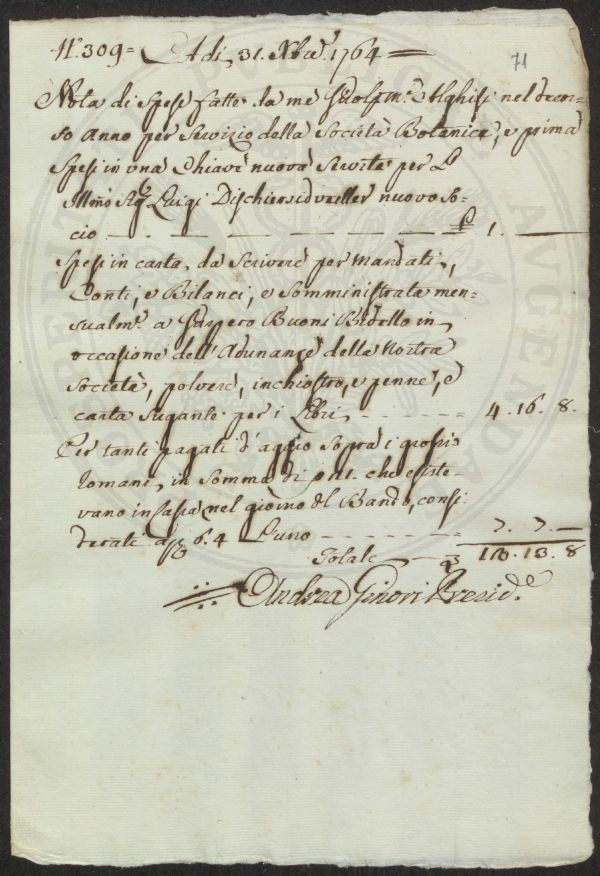 N.° 309 = A di, 31. Xbre. 1764 =
71
Nota di Spese fatte da me Ghisi nel decor=
so Anno per Servizio della Società Botanica, e prima
Spesi in una Chiave nuova Servita per L
Illmo Sig. Luigi nuovo So=
cio 1. —
Spesi in carta, da scrivere per mandati,
Conti, e Bilanci, e Somministrata men=
sualm.e a Gaspero Buoni Bidello in
occasione dell'Adunanze della Nostra
Società, polvere, inchiostro, e penne, e
carta sugante per i Libri, = 4. 16. 8.
Per tanti pagati d'aggio sopra i
Romani, in somma di che esiste=
vano in Cassa nel giorno del Bando, consi=
derati a 6. 4 L'uno = 7. 7. —
Totale 13. 13. 8
Andrea Ginori Presid.e